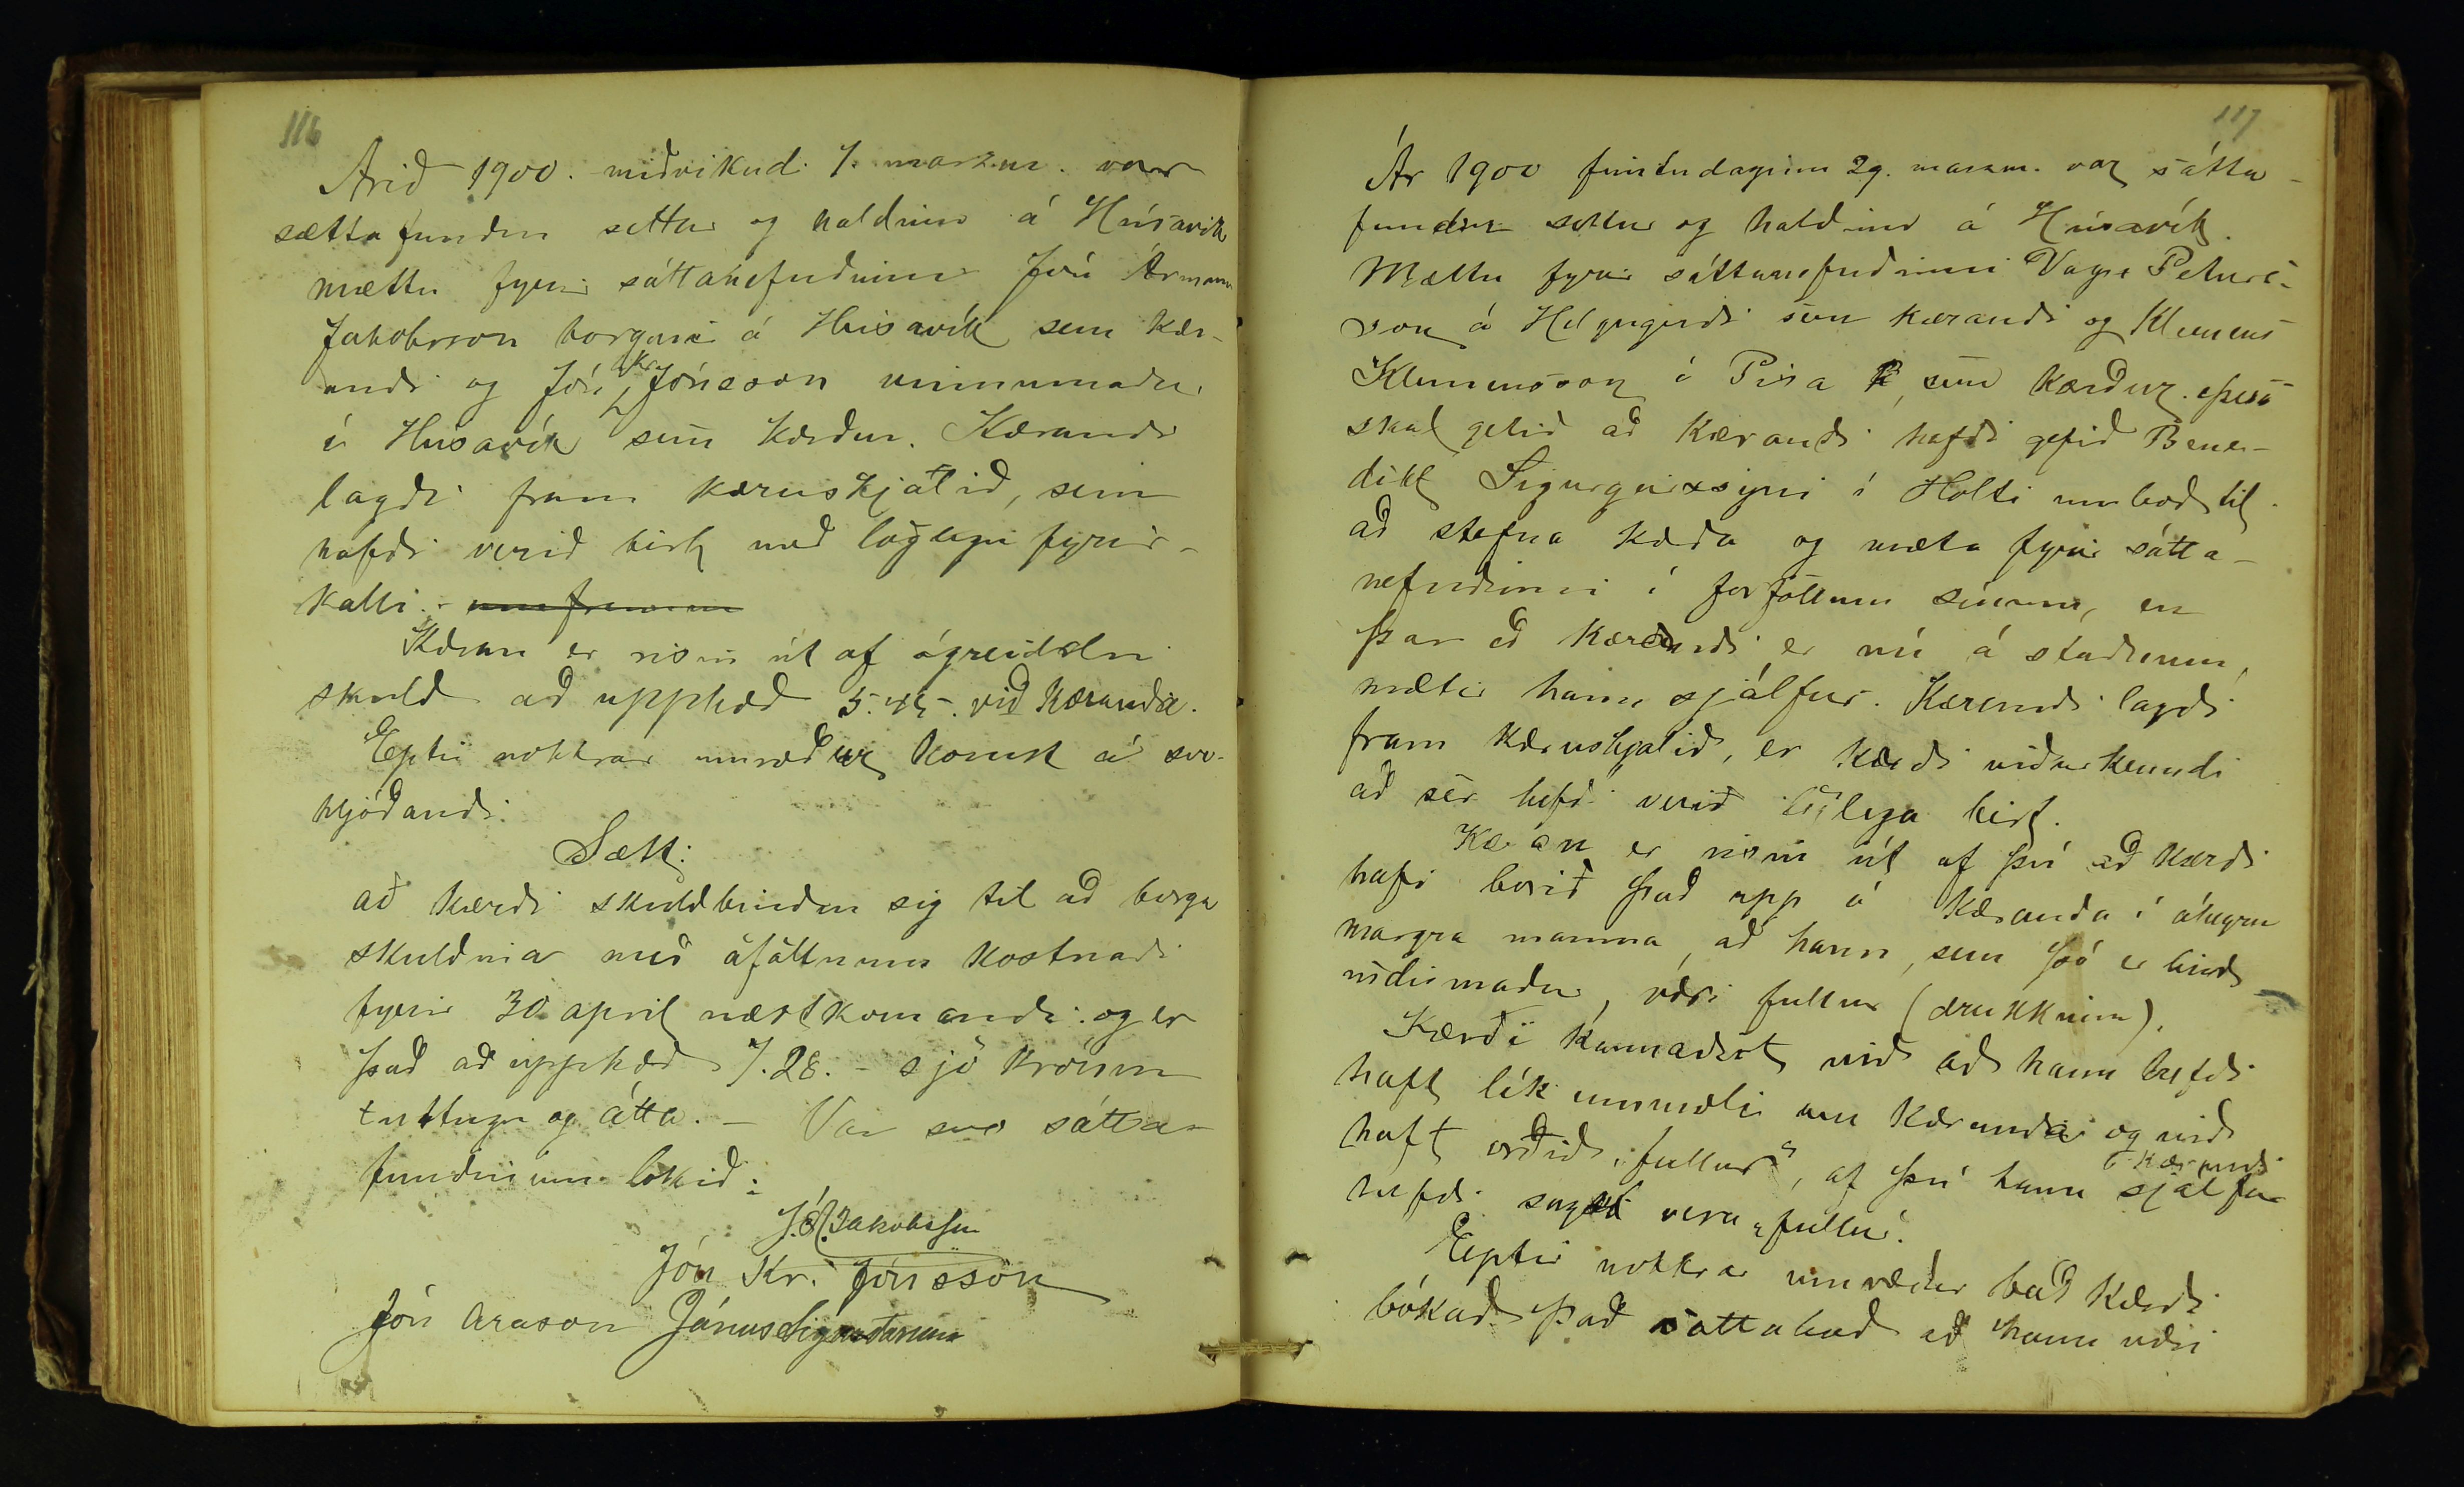 116
Árið 1900. miðvikud. 7. marzm. var
sættafundur settur og haldinn á Húsavík
mættu fyrir sáttanefndinni Jón Ármann
Jakobsson borgari á Húsavík sem kær-
andi og Jón Kr. Jónsson vinnumaður
í Húsavík sem kærður. Kærandi
lagði fram kæruskjalið, sem
hafði verið birt með löglegu fyrir-
kalli.
Kæran er risin út af ógreiddri
skuld að upphæð 5.45. við kæranda.
Eptir nokkrar umræður komst á svo-
hljóðandi:
Sætt:
að kærði skuldbindur sig til að borga
skuldina með áföllnum kostnaði
fyrir 30 april næstkomandi og er
það að upphæð 7.28. - sjö krónur
tuttugu og átta. - Var svo sátta-
fundinum lokið:
J. Á. Jakobsson
Jón Kr. Jónsson
Jón Arason Jónas Sigurðsson
117
Ár 1900 fimtudaginn 29. marzm. var sátta-
fundur settur og haldinn á Húsavík.
Mættu fyrir sáttanefndinni Vagn Peturs-
son á Helgugerði sem kærandi og Klemens
Klemensson í sem kærður. Þess
skal getið að kærandi hafði gefið Bene-
dikt Sigurgeirssyni í Holti umboð til
að stefna kærða og mæta fyrir sátta-
nefndinni í forföllum sínum, en
þar eð kærandi er nú á staðnum,
mætir hann sjálfur. Kærandi lagði
fram kæruskjalið, er kærði viðurkenndi
að sér hefði verið löglega birt.
Kæran er risin út af því að kærði
hafi borið það upp á kæranda í áheyrn
margra manna, að hann, sem þó er bind-
indismaður, væri fullur (drukkinn).
Kærði kannaðist við að hann hefði
haft lík ummæli um kæranda og við
haft orðið „fullur“, af því hann kærandi sjálfur
hefði sagst vera „fullur“.
Eptir nokkrar umræður bað kærði
bókað það sáttaboð að hann væri